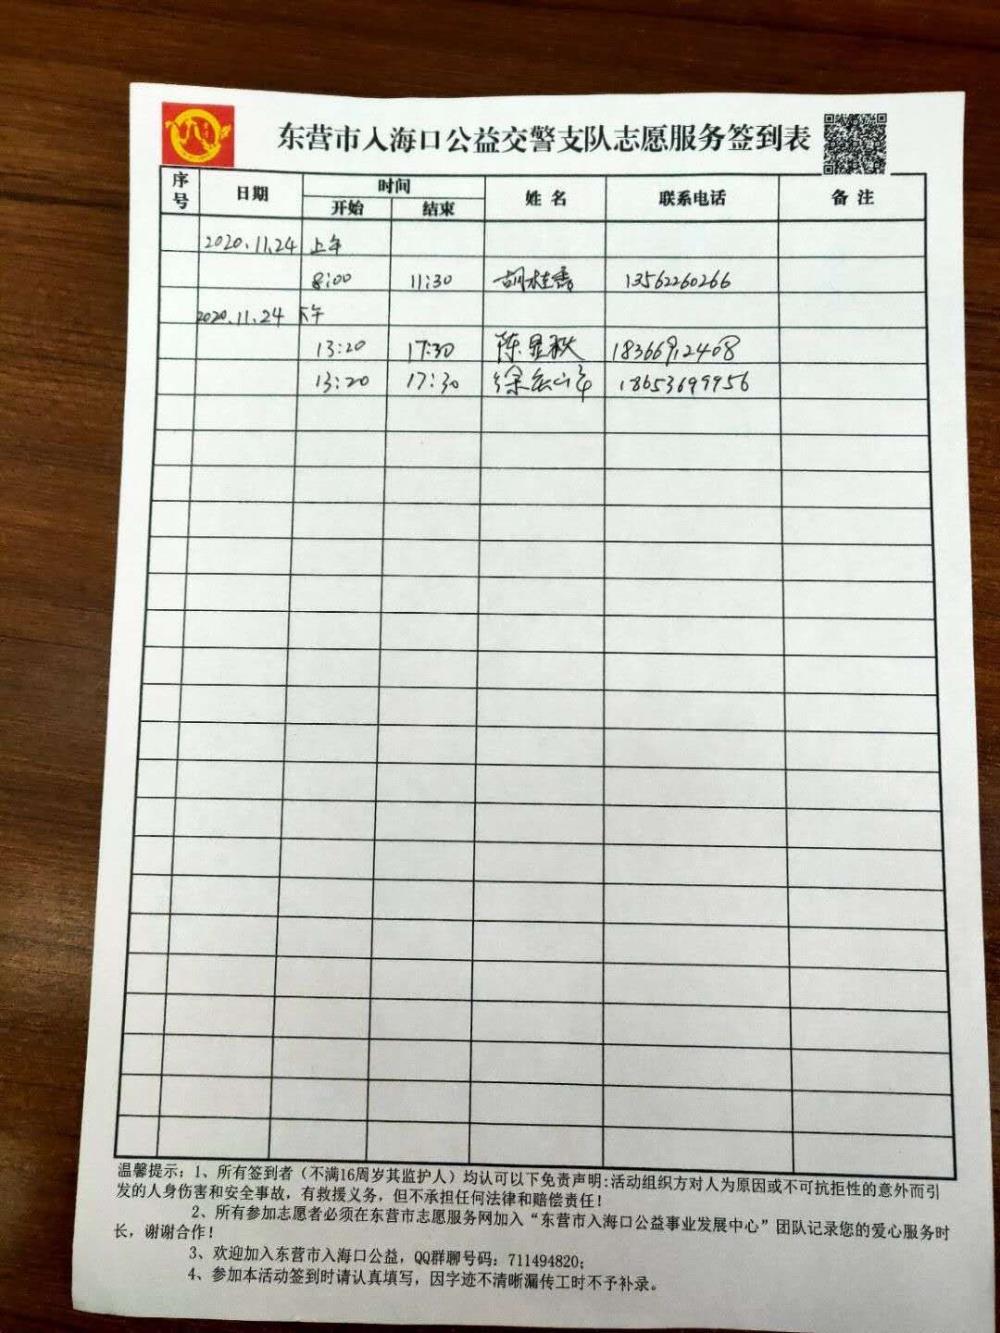 东营市入海口公益交警支队志愿服务签到表
序号 日期 时间 姓名 联系电话 备注
开始 结束
2020.11.24 上午
8:00 11:30 胡桂香 13562260266
2020.11.24 下午
13:20 17:30 陈显秋 18366912408
13:20 17:30 徐 18653699956
温馨提示：1、所有签到者（不满16周岁其监护人）均认可以下免责声明:活动组织方对人为原因或不可抗拒性的意外而引
发的人身伤害和安全事故，有救援义务，但不承担任何法律和赔偿责任！
2、所有参加志愿者必须在东营市志愿服务网加入“东营市入海口公益事业发展中心”团队记录您的爱心服务时
长，谢谢合作！
3、欢迎加入东营市入海口公益，QQ群聊号码：711494820;
4、参加本活动签到时请认真填写，因字迹不清晰漏传工时不予补录。